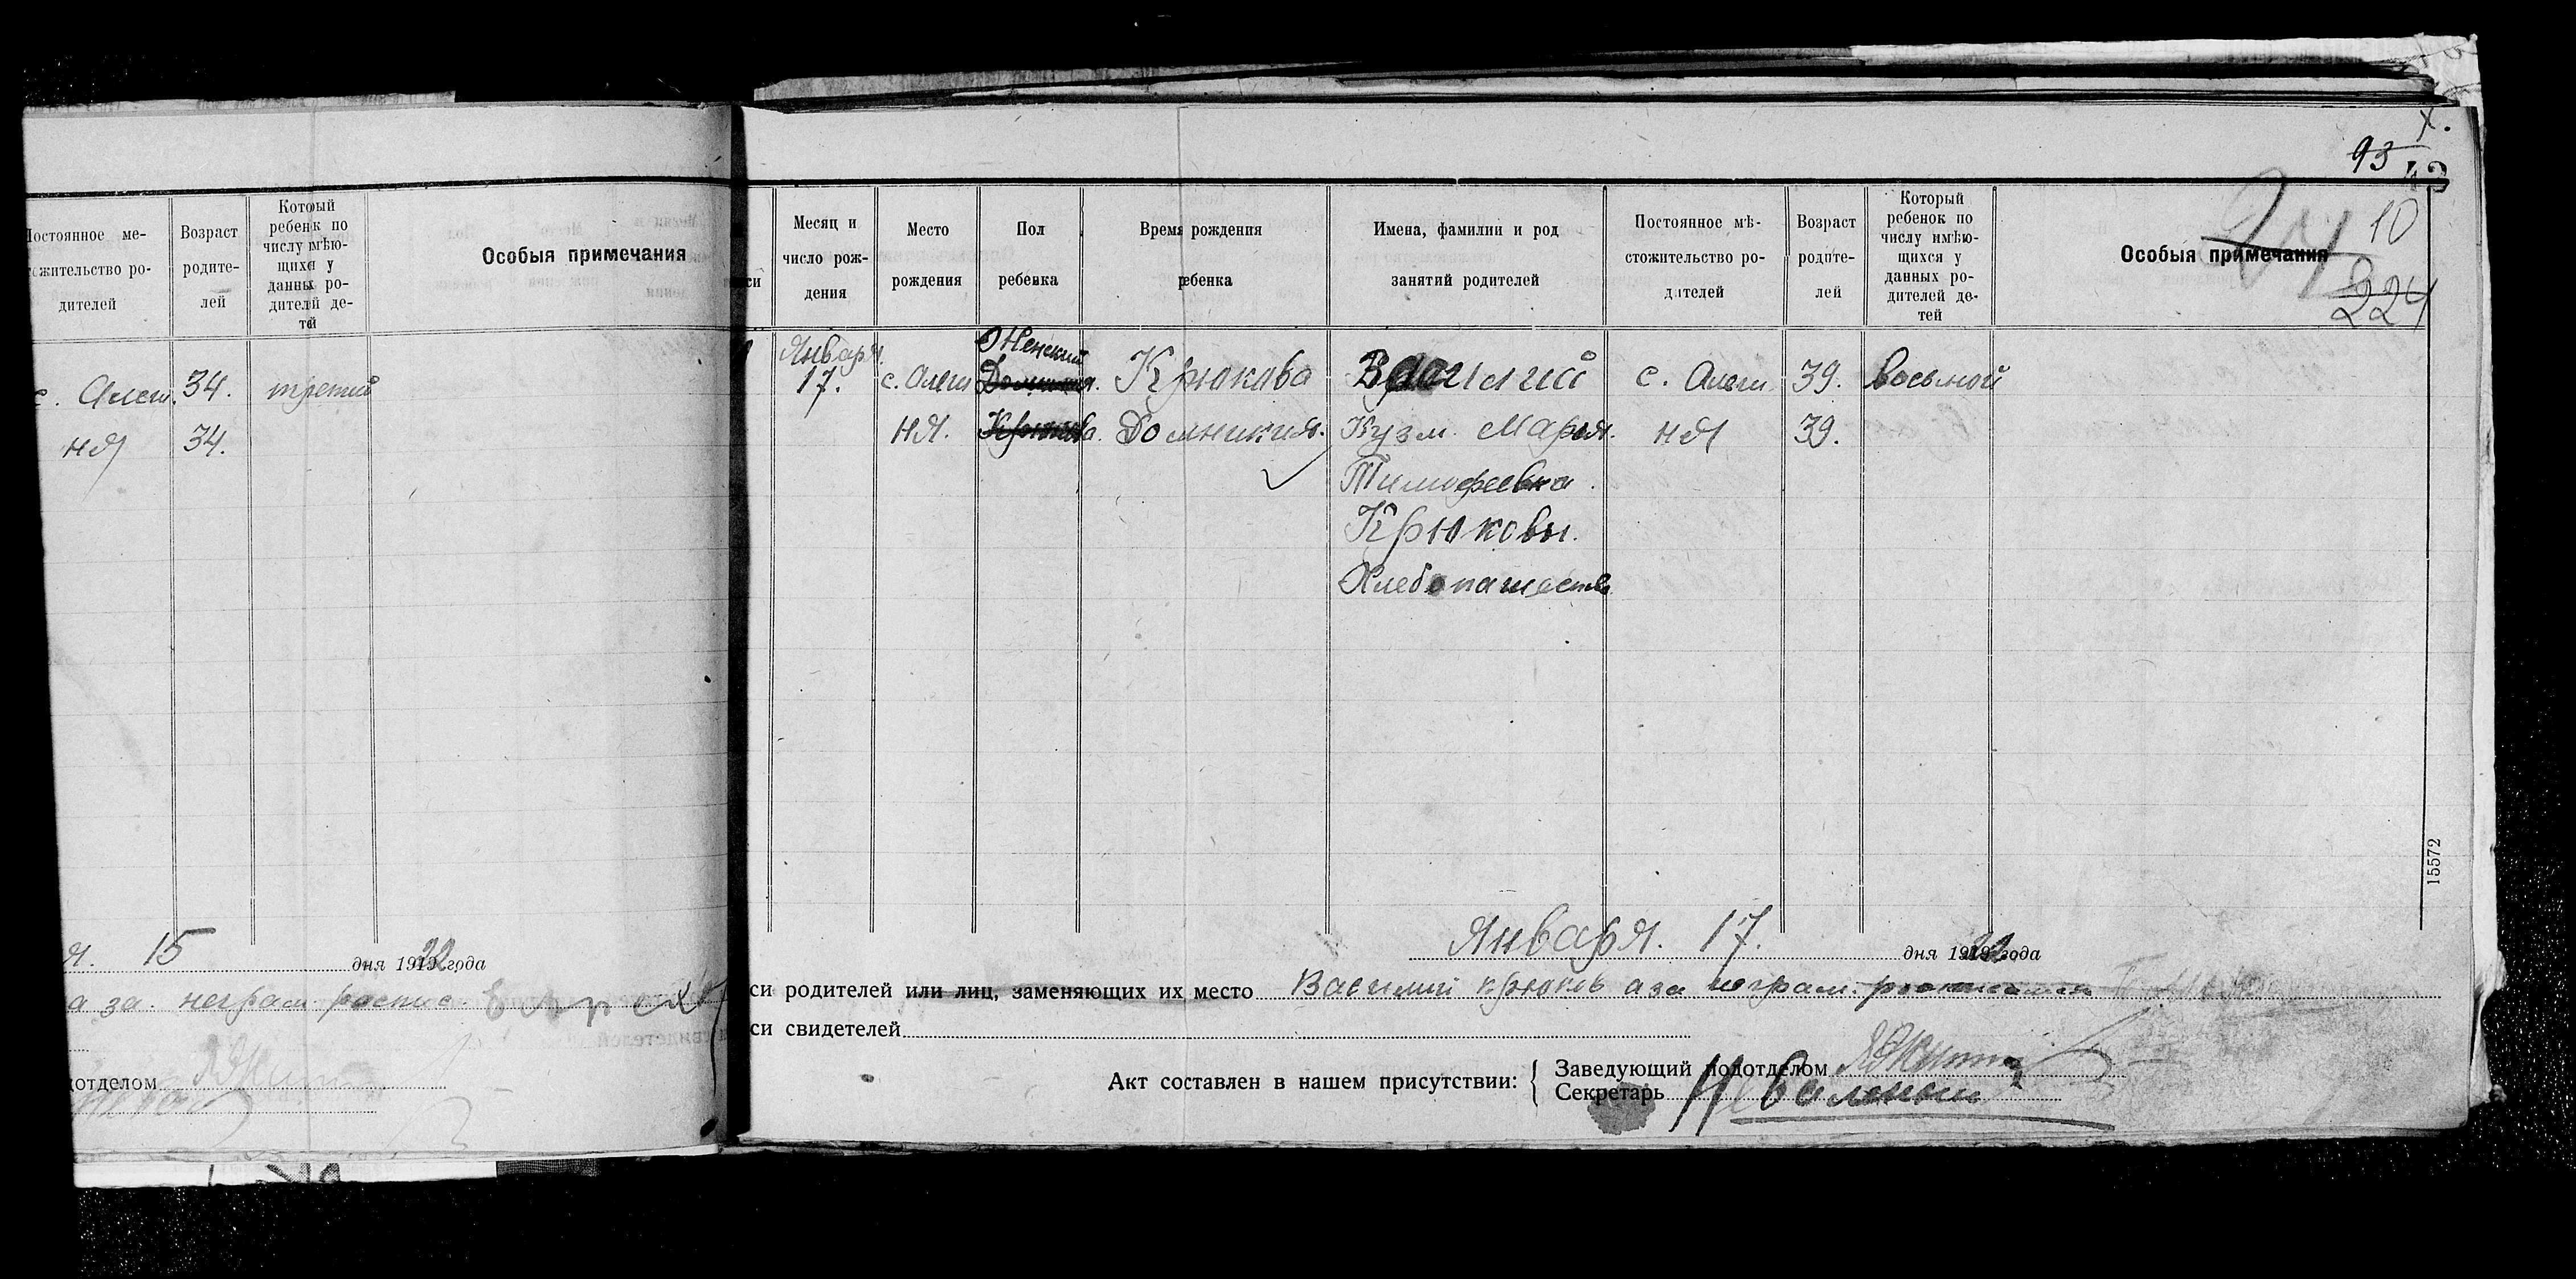 Постоянное ме-
стожительство ро-
дителей
Возраст
родите-
лей
Который
ребенк по
числу имѣю-
щихся у
данных ро-
дителей де-
тей
Особыя примечания
с. Алеш. 34. третий
ня 34.
я. 15 дня 1922 года
а за. неграм. роспис.
подотделом
X.
93
10
224
си
Месяц и
число рож-
дения
Место
рождения
Пол
ребенка
Время рождения
ребенка
Имена, фамилии и род
занятий родителей
Постоянное мѣ-
стожительство ро-
дителей
Возраст
родите-
лей
Который
ребенок по
числу имѣю-
щихся у
данных ро-
дителей де-
тей
Особыя примечания
Января. Женский
17. с. Алеш Домникия. Крюкова Василий с. Алеш. 39. Восьмой
ня. Крюкова. Домникия. Кузм. Марья. ня 39.
Тимофеевна.
Крюковы.
Хлебопашество
15572
Января. 17. дня 1922 года
си родителей или лиц, заменяющих их место Василий Крюков а за неграм.
си свидетелей
Акт составлен в нашем присутствии:
Заведующий подотделом
Секретарь